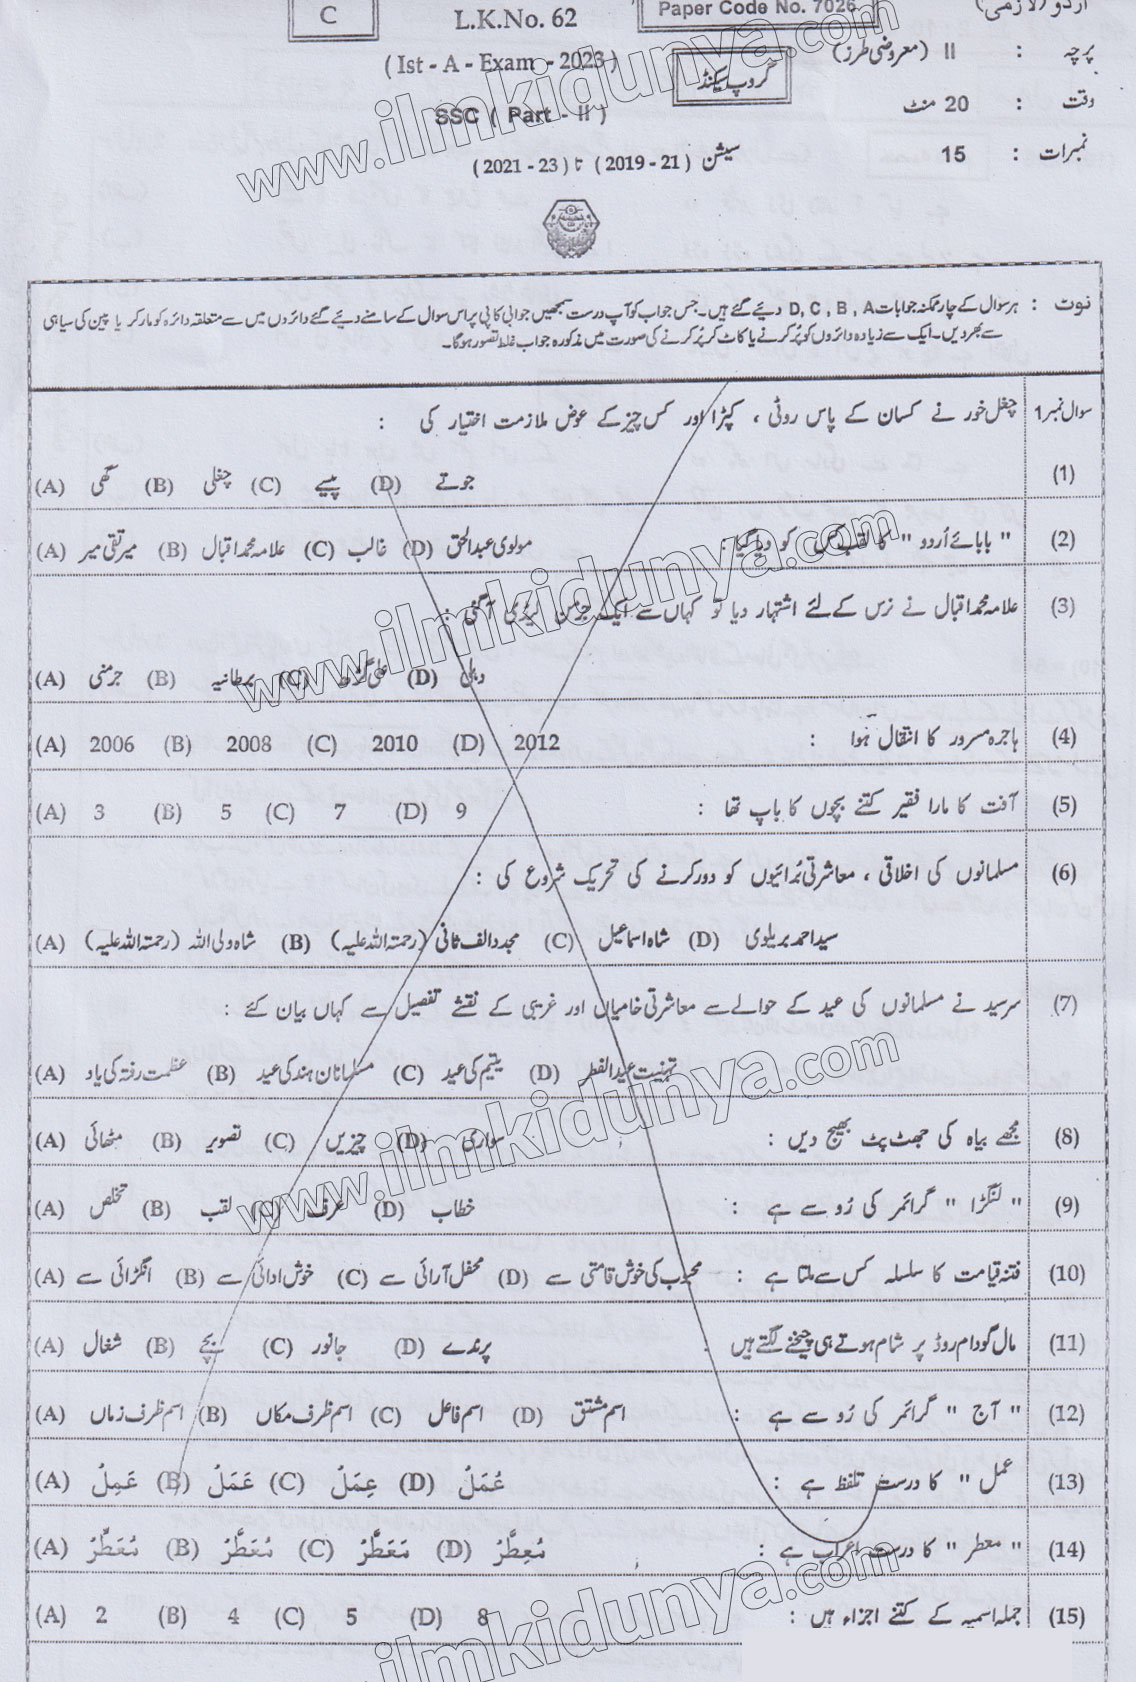 C
L.K.No. 62
Paper Code No. 7026
اردو (لازمی)
(Ist - A - Exam - 2023)
گروپ سیکنڈ
پرچہ : II (معروضی طرز)
SSC ( Part - II )
وقت : 20 منٹ
سیشن (2019 - 21) تا (2021 - 23)
نمبرات : 15
نوٹ : ہر سوال کے چار ممکنہ جوابات D, C , B , A دیئے گئے ہیں۔ جس جواب کو آپ درست سمجھیں جوابی کاپی پر اس سوال کے سامنے دیئے گئے دائروں میں سے متعلقہ دائرہ کو مارکر یا پین کی سیاہی
سے بھر دیں۔ ایک سے زیادہ دائروں کو پُر کرنے یا کاٹ کر پُر کرنے کی صورت میں مذکورہ جواب غلط تصور ہو گا۔
سوال نمبر1 چغل خور نے کسان کے پاس روٹی ، کپڑا اور کس چیز کے عوض ملازمت اختیار کی :
(1) (A) گھی (B) چغلی (C) پیسے (D) جوتے
(2) " بابائے اُردو " کا لقب کس کو دیا گیا : (A) میر تقی میر (B) علامہ محمد اقبال (C) غالب (D) مولوی عبدالحق
(3) علامہ محمد اقبال نے نرس کے لئے اشتہار دیا تو کہاں سے ایک جرمن لیڈی آ گئی :
(A) جرمنی (B) برطانیہ (C) علی گڑھ (D) دہلی
(4) ہاجرہ مسرور کا انتقال ہوا : (A) 2006 (B) 2008 (C) 2010 (D) 2012
(5) آفت کا مارا فقیر کتنے بچوں کا باپ تھا : (A) 3 (B) 5 (C) 7 (D) 9
(6) مسلمانوں کی اخلاقی ، معاشرتی بُرائیوں کو دور کرنے کی تحریک شروع کی :
(A) شاہ ولی اللہ (رحمتہ اللہ علیہ) (B) مجدد الف ثانی (رحمتہ اللہ علیہ) (C) شاہ اسماعیل (D) سید احمد بریلوی
(7) سرسید نے مسلمانوں کی عید کے حوالے سے معاشرتی خامیاں اور غریبی کے نقشے تفصیل سے کہاں بیان کئے :
(A) عظمت رفتہ کی یاد (B) مسلمانان ہند کی عید (C) یتیم کی عید (D) تہنیت عیدالفطر
(8) مجھے بیاہ کی جھٹ پٹ بھیج دیں : (A) مٹھائی (B) تصویر (C) چیزیں (D) سواری
(9) " لنگڑا " گرائمر کی رُو سے ہے : (A) تخلص (B) لقب (C) عرف (D) خطاب
(10) فتنہ قیامت کا سلسلہ کس سے ملتا ہے : (A) انگڑائی سے (B) خوش ادائی سے (C) محفل آرائی سے (D) محبوب کی خوش قامتی سے
(11) مال گودام روڈ پر شام ہوتے ہی چیخنے لگتے ہیں : (A) شغال (B) بچے (C) جانور (D) پرندے
(12) " آج " گرائمر کی رُو سے ہے : (A) اسم ظرف زماں (B) اسم ظرف مکاں (C) اسم فاعل (D) اسم مشتق
(13) عمل " کا درست تلفظ ہے : (A) عَمِلْ (B) عَمَلْ (C) عِمَلْ (D) عُمَلْ
(14) " معطر " کا درست اعراب ہے : (A) (B) (C) مَعَطَّرْ (D) مُعِطَّرْ
(15) جملہ اسمیہ کے کتنے اجزاء ہیں : (A) 2 (B) 4 (C) 5 (D) 8
www.ilmkidunya.com
www.ilmkidunya.com
www.ilmkidunya.com
www.ilmkidunya.com